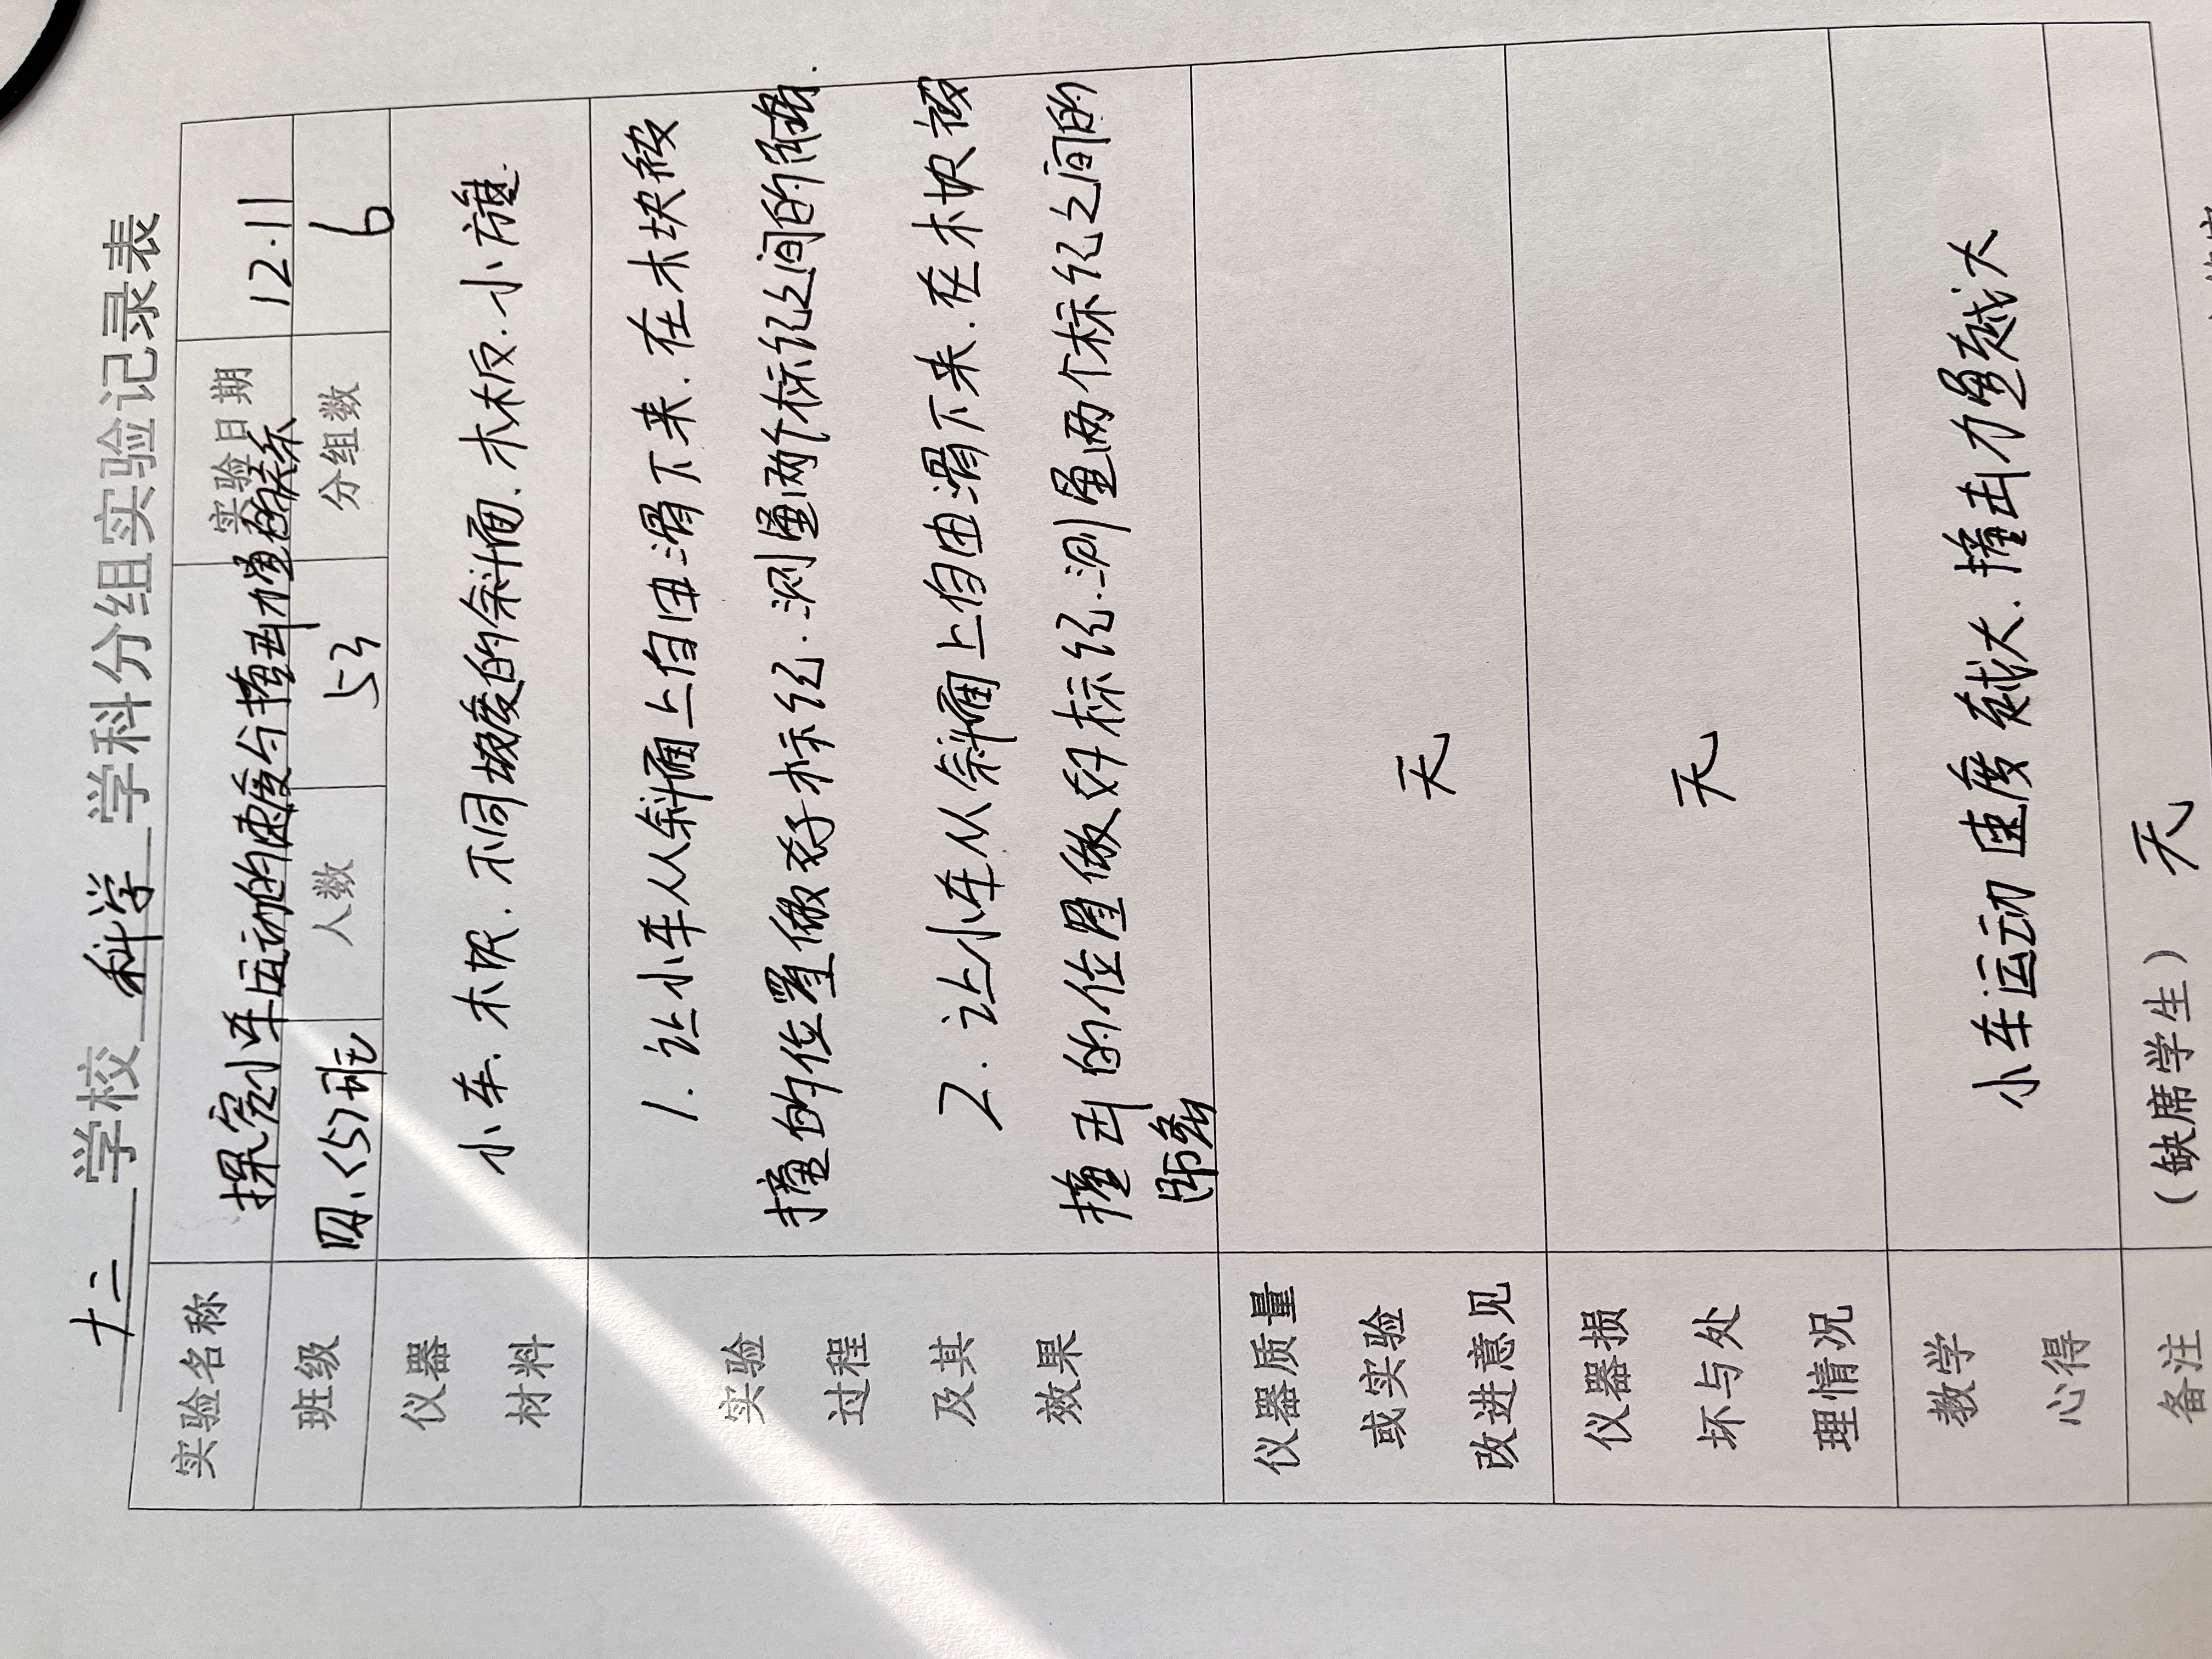 十二 学校 科学 学科分组实验记录表
实验名称 探究小车运动的速度与撞击力量的关系 实验日期 12.11
班级 四.(5)班 人数 53 分组数 6
仪器 材料 小车.木板.不同坡度的斜面.木板.小旗.
实验 过程 及其 效果
1.让小车从斜面上自由滑下来.在木块被
撞的位置做好标记.测量两个标记之间的距离.
2.让小车从斜面上自由滑下来.在木块被
撞击的位置做好标记.测量两个标记之间的
距离
仪器质量 或实验 改进意见 无
仪器损 坏与处 理情况 无
教学 心得 小车运动速度越大.撞击力量越大
备注 (缺席学生) 无